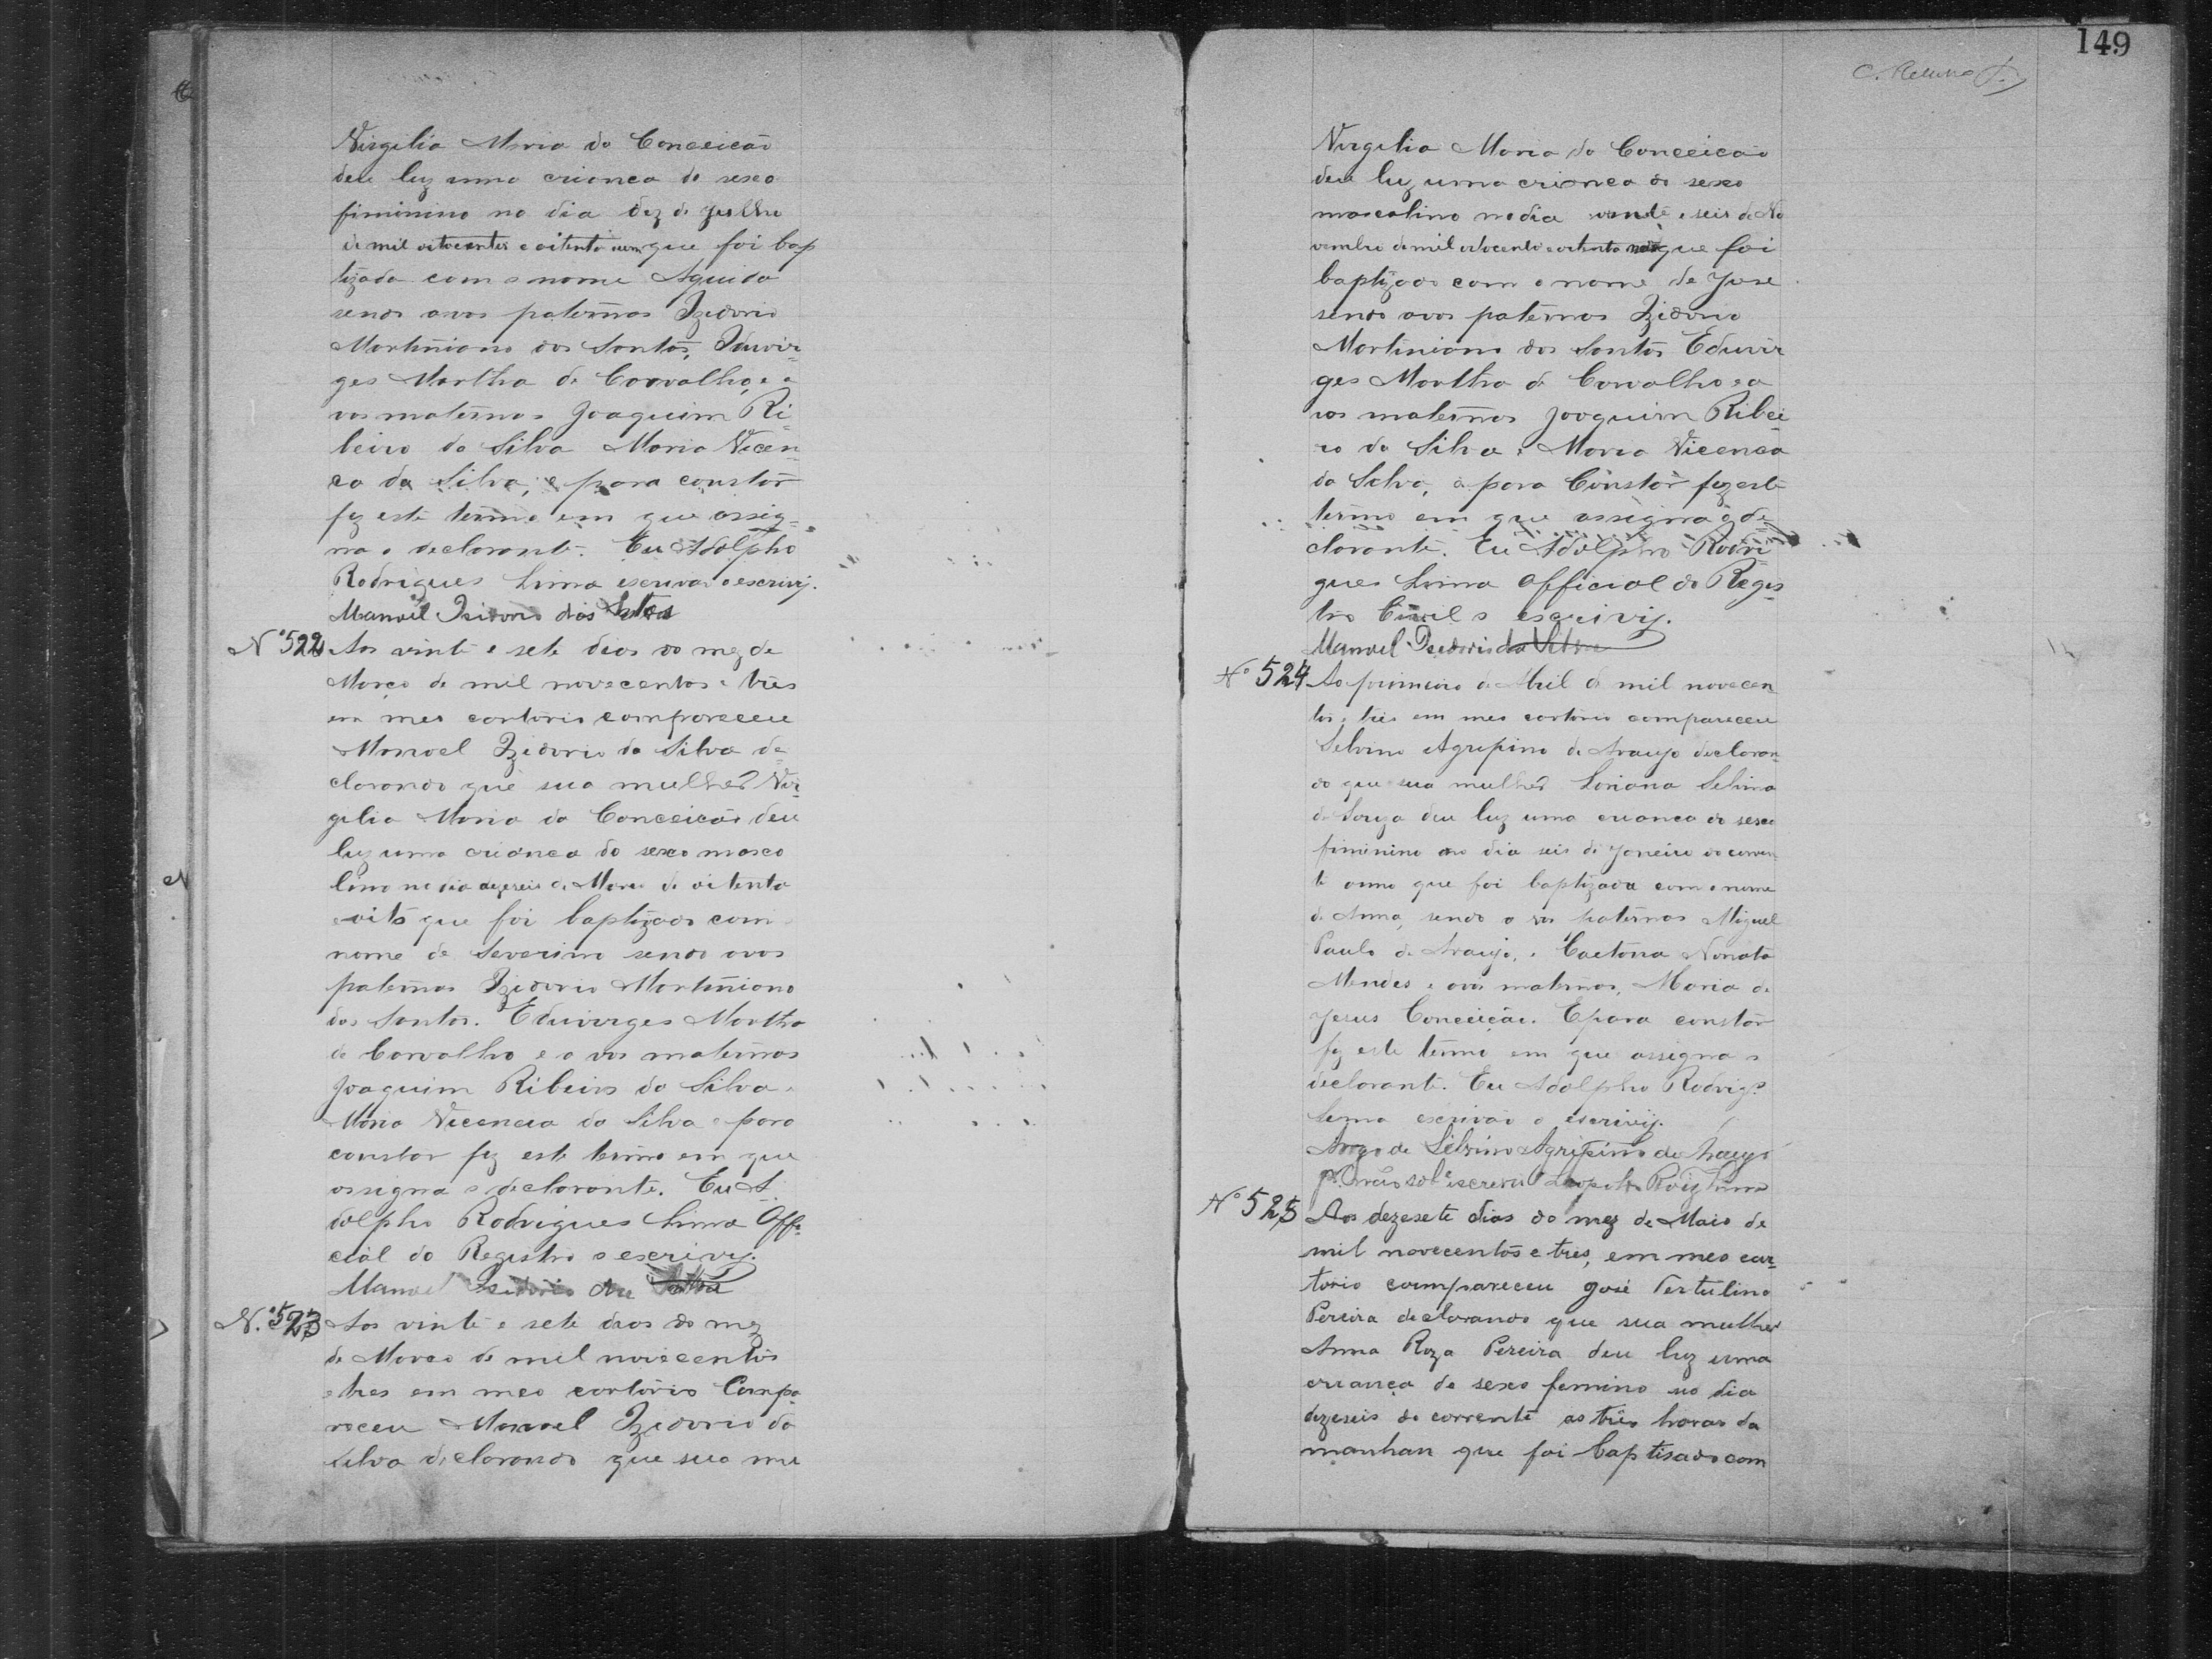 Virgilia Maria da Conceicão
deu luz uma crianca do sexo
fiminino no dia dez de Julho
de mil oitocentos e oitenta que foi bap
tizada com o nome Aguida
sendo avos paternos Izidorio
Martiniano dos Santos, Eduvir-
ges Martha de Carvalho, e a
vos maternos Joaquim Ri-
beiro da Silva Maria Vicen-
ca da Silva, e para constar
fiz este termo em que assig-
na o declarante. Eu Adolpho
Rodrigues Lima escrivão o escrivy.
Manoel Isidorio dos
Nº 522 Aos vinte e sete dias do mez de
Março de mil novecentos e tres
em meo cartorio compareceu
Manoel Izidorio da Silva de-
clarando que sua mulher Vir-
gilia Maria da Conceicão deu
luz uma crianca do sexo masco
lino no dia dezeseis de Março de oitenta
e oito que foi baptizado com
nome de Severino sendo avos
paternos Izidorio Martiniano
dos Santos. Eduvirges Martha
de Carvalho e a vos maternos
Joaquim Ribeiro da Silva e
Maria Vicencia da Silva e para
constar fiz este termo em que
assigna o declarante. Eu A-
dolpho Rodrigues Lima Offi-
cial do Registro o escrivy.
Manoel Isidorio da Silva
N.º 523 Aos vinte e sete dias do mez
de Março de mil novecentos
e tres em meo cartorio Compa-
receu Manoel Izidorio da
Silva declarando que sua mu
149
Virgilia Maria da Conceicão
deu luz uma crianca do sexo
mascolino no dia vinte e seis de No
vembro de mil oitocento e oitenta que foi
baptizado com o nome de Jose
sendo avos paternos Izidorio
Martiniano dos Santos Eduvir
ges Martha de Carvalho e a
vos maternos Joaquim Ribei-
ro da Silva e Maria Vicenca
da Silva, e para Constar fiz este
termo em que assigna o de-
clarante. Eu Adolpho Rodri-
gues Lima Official do Regis-
tro Civil o escrivy.
Manoel Isidorio da Silva
Nº 524 Ao primeiro de Abril de mil novecen
tos e tres em meo cartorio compareceu
Silvino Agripino de Araujo declaran-
do que sua mulher Loriana Selvina
de Souza deu luz uma crianca do sexo
fiminino no dia seis de Janeiro do corren-
te anno que foi baptizada com o nome
de Anna, sendo a vos paternos Miguel
Paulo de Araujo, e Caetana Nonata
Mendes e avos maternos, Maria de
Jesus Conceição. E para constar
fiz este termo em que assigna o
declarante. Eu Adolpho Rodrigs.
Lima escrivão o escrivy.
Arogo de Silvino Agripino de Araujo
pr. não sabe escrever Roiz Lima
Nº 525 Aos dezesete dias do mez de Maio de
mil novecentos e tres, em meo car-
torio compareceu José Tertulino
Pereira declarando que sua mulher
Anna Roza Pereira deu luz uma
criança de sexo femino no dia
dezeseis do corrente as três horas da
manhan que foi baptisado com